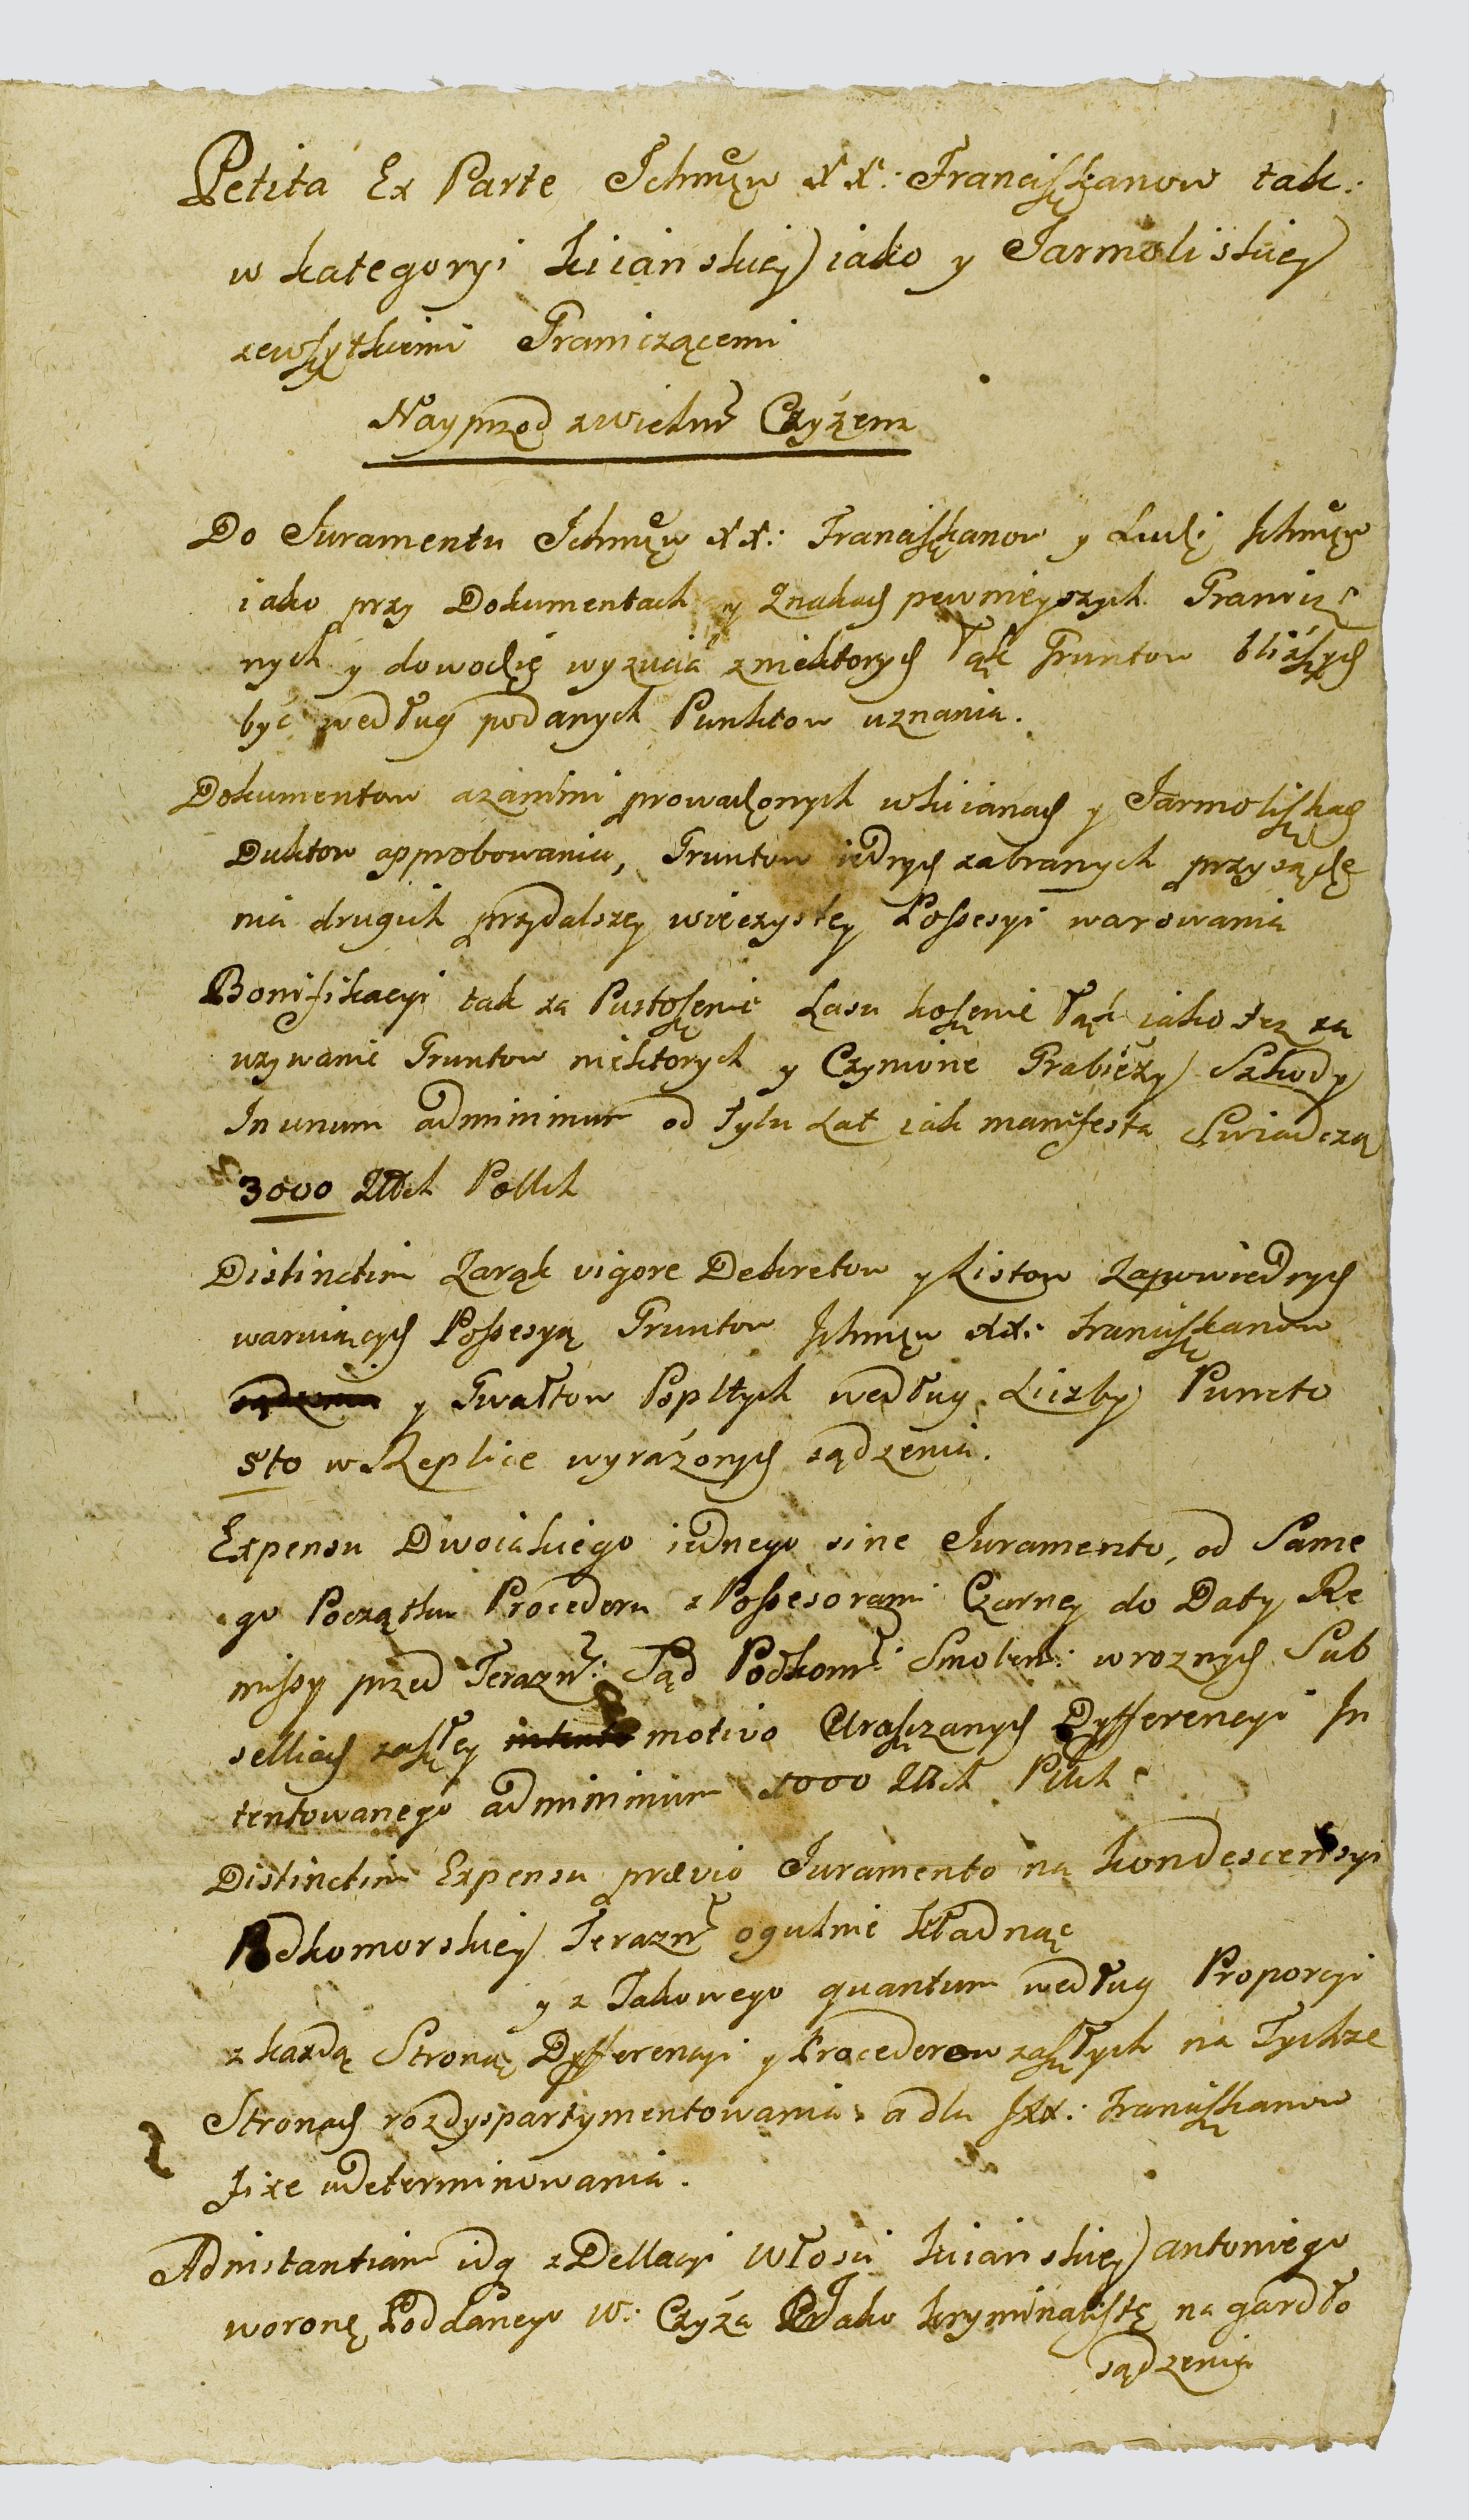 Petita Ex Parte Ichmcw XX: Franciszkanow tak
w kategoryi kiianskiey iako y Jarmoliskiey
zewszytkiemi Graniczącemi
Nayprzod zwielm Czyżem
Do Juramentu Ichmcw XX: Franciszkanow y Ludzi Ichmcw
iako przy Dokumentach y Znakach pewnieyszych Granicz
nych y dowodzie wyzucia zniektorych Łąk Gruntow bliższych
być według podanych Punktow uznania.
Dokumentow azanimi prowadzonych wkiianach y Jarmoliszkach
Duktow approbowania, Gruntow iednych zabranych przysądze
nia drugich przydalszey wieczystey Possesyi warowania
Bonifikacyi tak za Pustoszenie Lasu koszenie Łąk iako tez za
uzywanie Gruntow niektorych y Czynione Grabieży Szkody
In unum adminimum od tylu Lat iak manifesta Swiadczą
3000 Złłch Pollch
Distinctim Zaręk vigore Dekretow y Listow Zapowiednych
waruiących Possesyą Gruntow Ichmcw XX: Franciszkanow
y Gwałtow Popłłych według Liczby Puncto
5to w Replice wyrażonych sądzenia.
Expensu Dwoiakiego iednego sine Juramento, od Same
go Początku Procederu z Possesorami Czarney do Daty Re
missy przed Terazn: Sąd Podkom: Smolen: wroznych Sub
selliach zaszłey motivo Uraszczanych Dyfferencyi In
tentowanego adminimum 1000 Złłch Pllch
Distinctim Expensu prævio Juramento na kondescensyi
Podkomorskiey Terazn ogulnie kładnąc
y z Takowego quantum według Proporcyi
z każdą Stroną Dyfferencyi y Procederow zaszłych na Tychze
Stronach rozdyspartymentowania a dla IXX: Franciszkanow
fixe udeterminowania.
Adinstantiam idą z Dellacyi Włosci kiianskiey antoniego
woronę Poddanego W: Czyża Jako kryminalistę na gardło
sądzenia